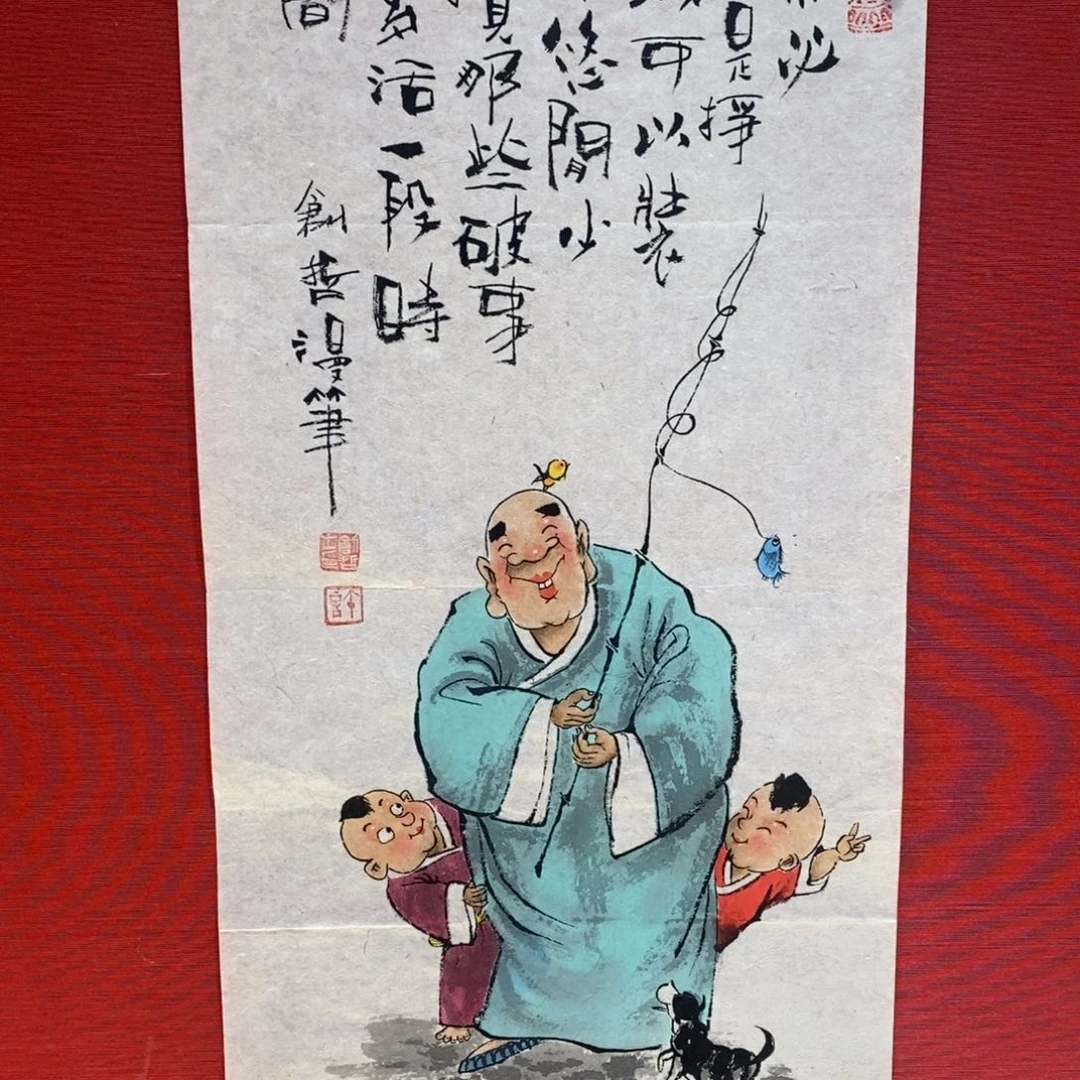 必
是掙
可以裝
悠閒少
那些破事
多活一段時
間
創哲漫筆